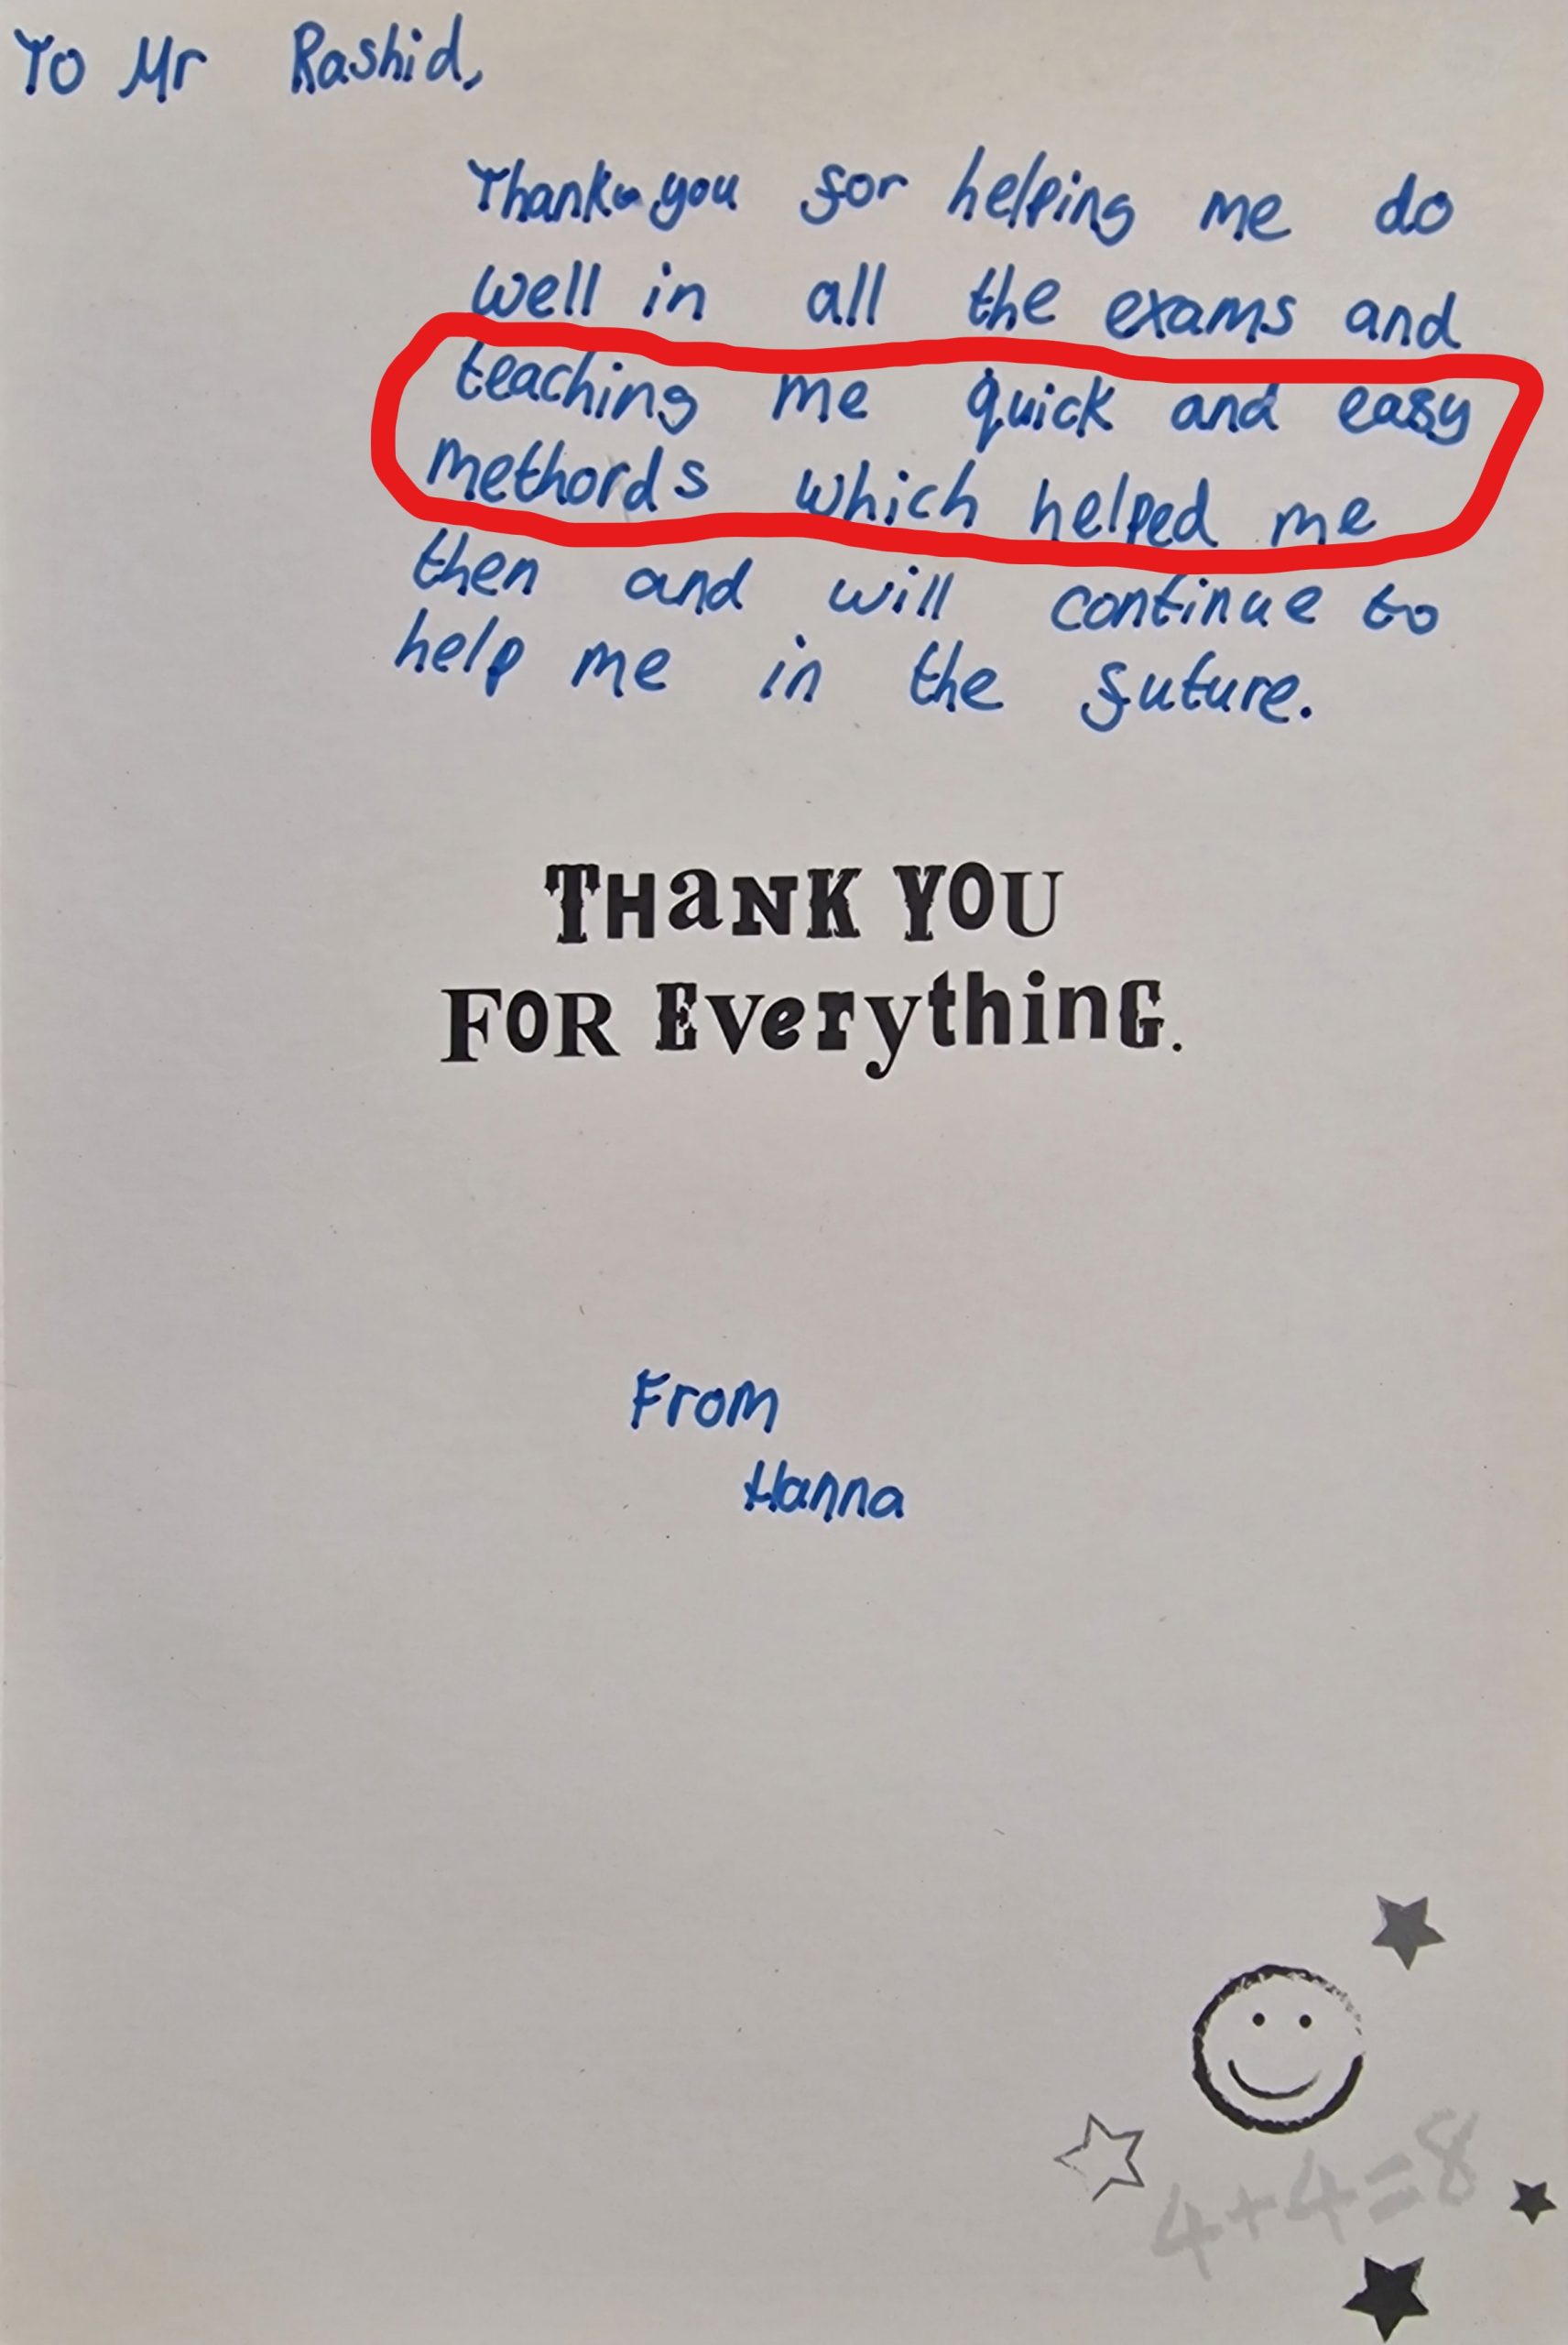 To Mr Rashid,
Thank you for helping me do
well in all the exams and
teaching me quick and easy
methords which helped me
then and will continue to
help me in the future.
THaNK YOU
FOR EverythinG.
From
Hanna
4+4=8